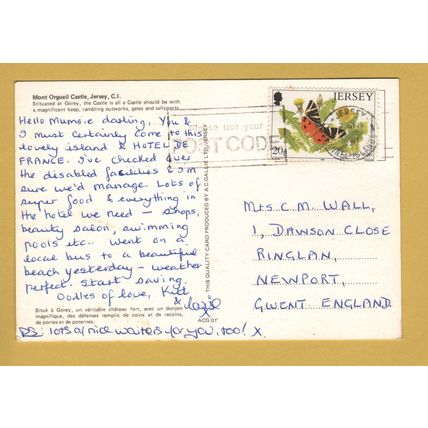 Mont Orgueil Castle, Jersey, C.I.
Situated at Gorey, the Castle is all a Castle should be with
a magnificent keep, rambling outworks, gates and sallyports.
Hello Mumsie darling, You &
I must certainly come to this
lovely island & HOTEL DE
FRANCE. I've checked over
the disabled facilities & I'm
sure we'd manage. Lots of
super food & everything in
the hotel we need – shops,
beauty salon, swimming
pools etc.. Went on a
local bus to a beautiful
beach yesterday – weather
perfect. Start saving.
Oodles of love,
&
Situé à Gorey, un véritable château fort, avec un donjon
magnifique, des défenses remplis de coins et de recoins,
de portes et de poternes.
PS: lots of nice waiters for you, too! X.
THIS QUALITY CARD PRODUCED BY A.C. GALLIE LTD., JERSEY
use your
POSTCODE
JERSEY
20
JERSEY
Mrs C. M. WALL,
1, DAWSON CLOSE
RINGLAN,
NEWPORT,
GWENT ENGLAND